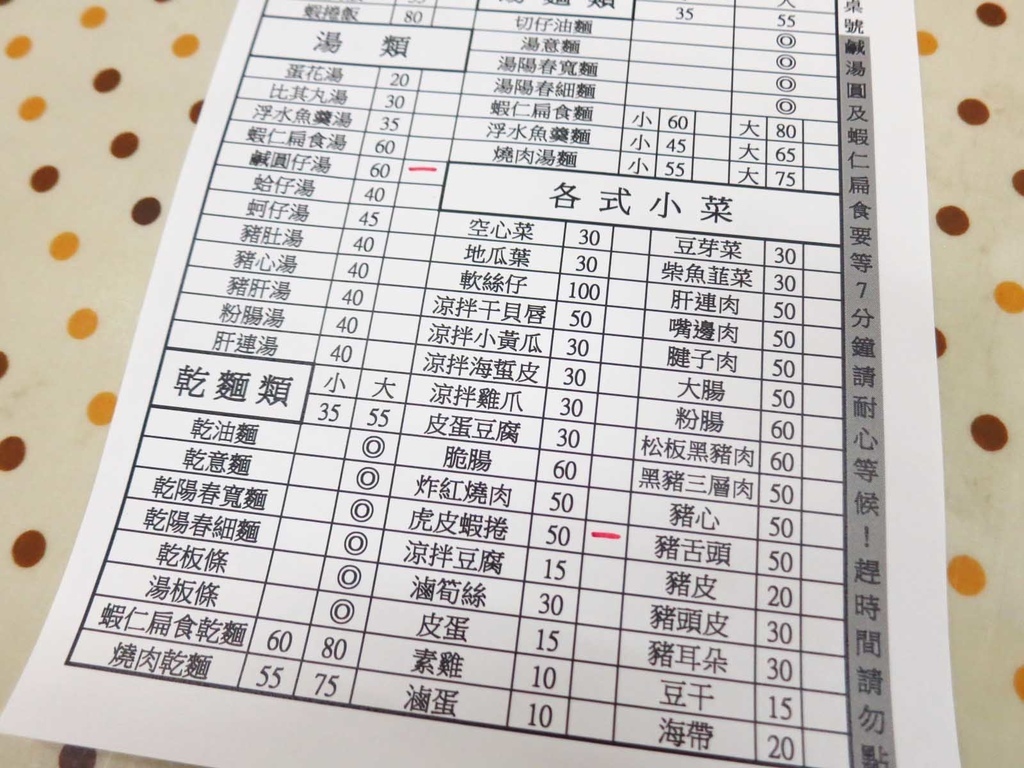 蝦捲飯 80
湯類
蛋花湯 20
比其丸湯 30
浮水魚羹湯 35
蝦仁扁食湯 60
鹹圓仔湯 60 一
蛤仔湯 40
蚵仔湯 45
豬肚湯 40
豬心湯 40
豬肝湯 40
粉腸湯 40
肝連湯 40
乾麵類 小 大
35 55
乾油麵 ◎
乾意麵 ◎
乾陽春寬麵 ◎
乾陽春細麵 ◎
乾板條 ◎
湯板條 ◎
蝦仁扁食乾麵 60 80
燒肉乾麵 55 75
湯麵類 35 大 55
切仔油麵 ◎
湯意麵 ◎
湯陽春寬麵 ◎
湯陽春細麵 ◎
蝦仁扁食麵 小 60 大 80
浮水魚羹麵 小 45 大 65
燒肉湯麵 小 55 大 75
各式小菜
空心菜 30
地瓜葉 30
軟絲仔 100
涼拌干貝唇 50
涼拌小黃瓜 30
涼拌海蜇皮 30
涼拌雞爪 30
皮蛋豆腐 30
脆腸 60
炸紅燒肉 50
虎皮蝦捲 50 一
涼拌豆腐 15
滷筍絲 30
皮蛋 15
素雞 10
滷蛋 10
豆芽菜 30
柴魚韮菜 30
肝連肉 50
嘴邊肉 50
腱子肉 50
大腸 50
粉腸 60
松板黑豬肉 60
黑豬三層肉 50
豬心 50
豬舌頭 50
豬皮 20
豬頭皮 30
豬耳朵 30
豆干 15
海帶 20
桌號
鹹湯圓及蝦仁扁食要等7分鐘請耐心等候！趕時間請勿點